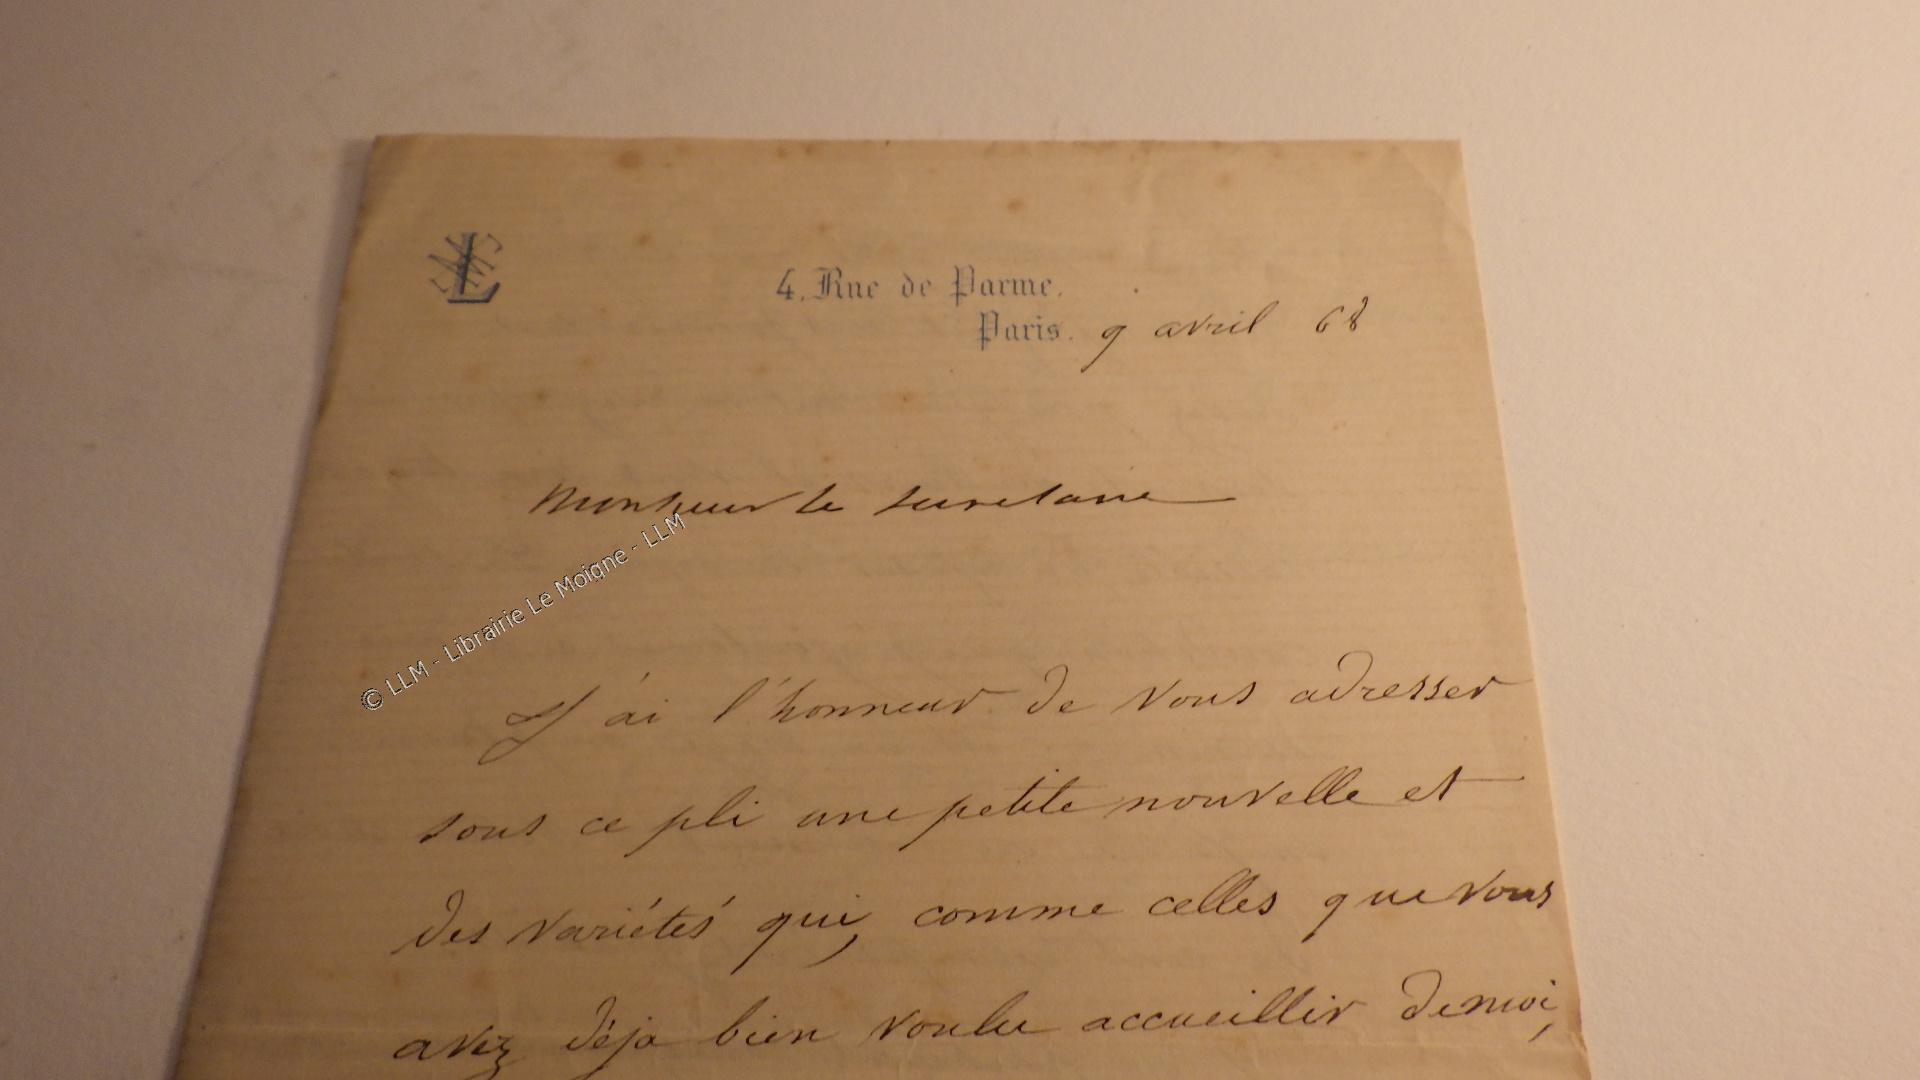 4, Rue de Parme.
Paris. 9 avril 68
Monsieur le secretaire
© LLM - Librairie Le Moigne - LLM
J'ai l'honneur de vous adresser
sous ce pli une petite nouvelle et
des variétés qui, comme celles que vous
avez déja bien voulu accueillir de moi,